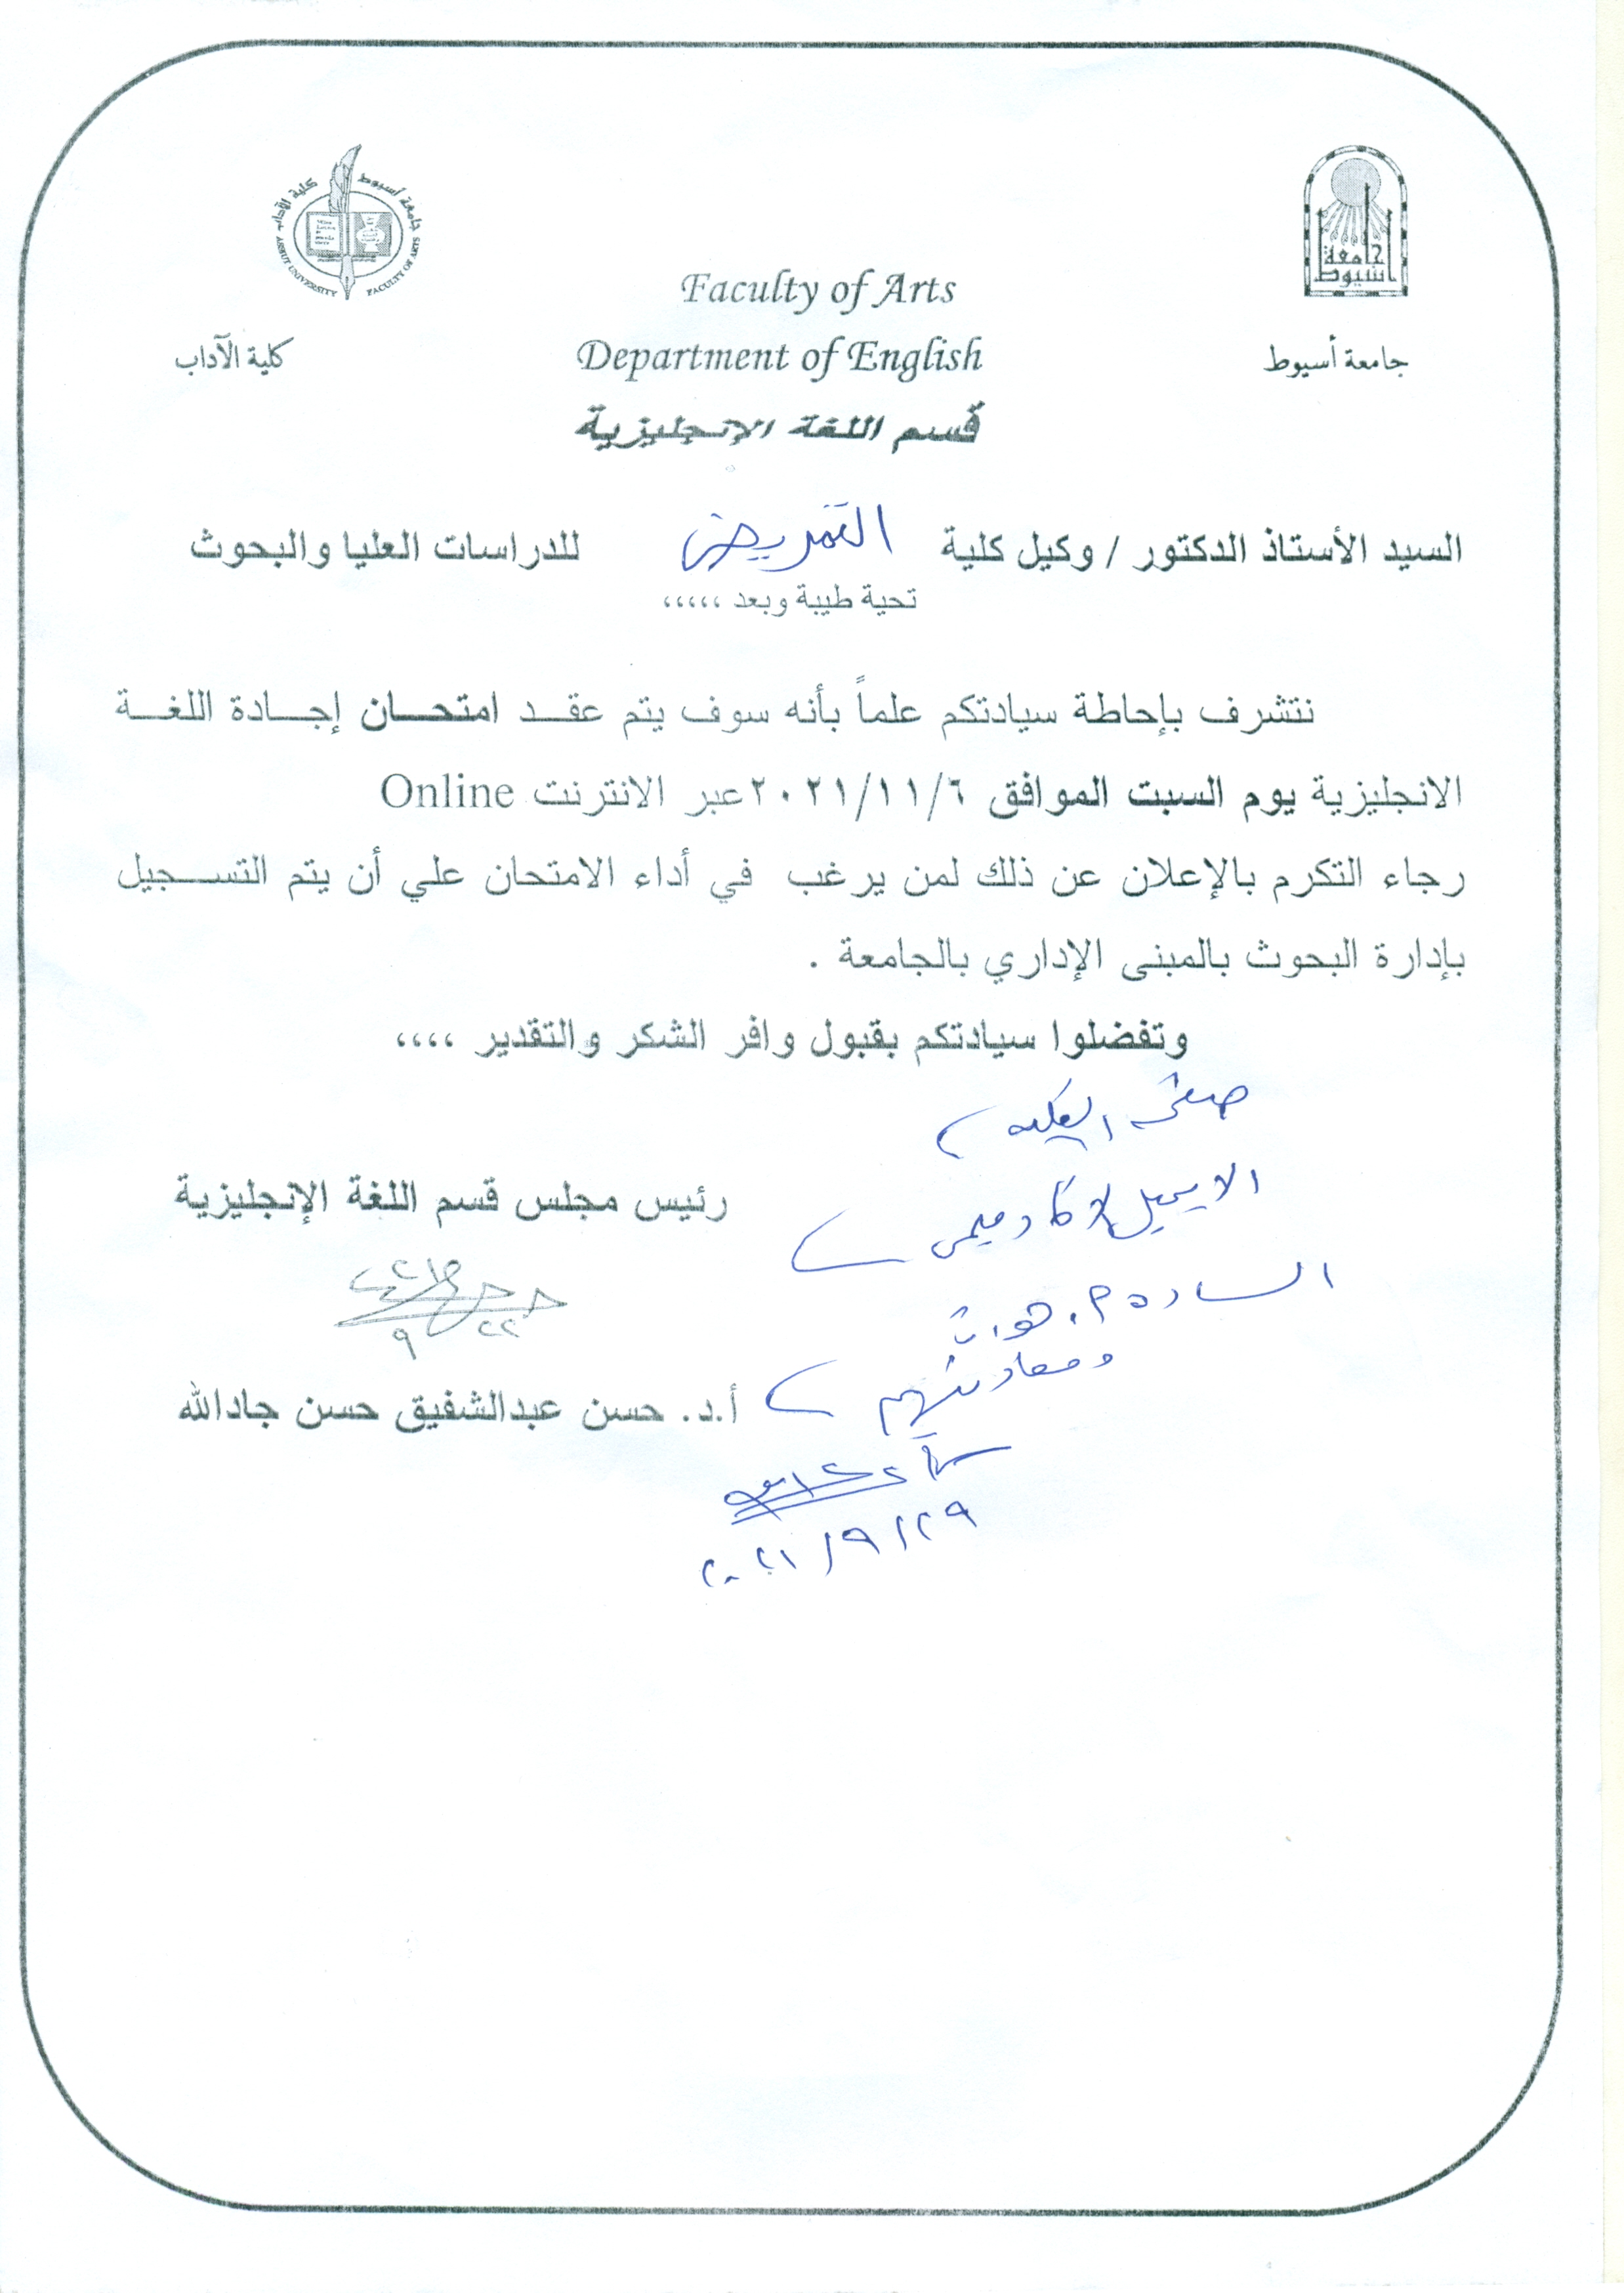 جامعة أسيوط
كلية الآداب
جامعة أسيوط كلية الآداب
ASSIUT UNIVERSITY FACULTY OF ARTS
جامعة أسيوط
كلية الآداب
Faculty of Arts
Department of English
قسم اللغة الإنجليزية
السيد الأستاذ الدكتور / وكيل كلية التمريض للدراسات العليا والبحوث
تحية طيبة وبعد ،،،،،
نتشرف بإحاطة سيادتكم علماً بأنه سوف يتم عقد امتحان إجادة اللغة
الانجليزية يوم السبت الموافق ٢٠٢١/١١/٦ عبر الانترنت Online
رجاء التكرم بالإعلان عن ذلك لمن يرغب في أداء الامتحان علي أن يتم التسجيل
بإدارة البحوث بالمبنى الإداري بالجامعة .
وتفضلوا سيادتكم بقبول وافر الشكر والتقدير ،،،،
الايميل الاكاديمى
رئيس مجلس قسم اللغة الإنجليزية
الساده
ومعاونيهم
أ.د. حسن عبدالشفيق حسن جادالله
٢٠٢١/٩/٢٩